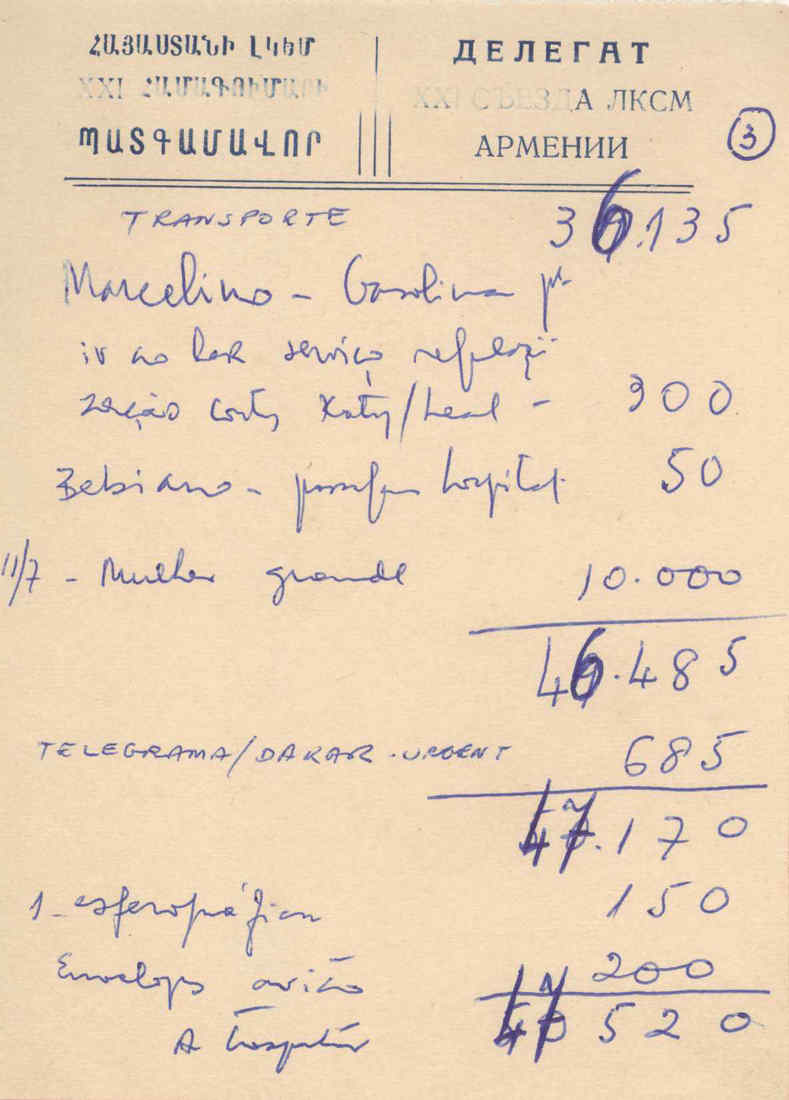 ՀԱՅԱՍՏԱՆԻ ԼԿԵՄ
XXI ՀԱՄԱԳՈՒՄԱՐԻ
ՊԱՏԳԱՄԱՎՈՐ
ДЕЛЕГАТ
XXI СЪЕЗДА ЛКСМ
АРМЕНИИ
3
TRANSPORTE 36.135
Marcelino - Gasolina pª
ir ao bar serviço
Katy/Leal - 300
Bebiano - hospital 50
11/7 - Mulher grande 10.000
46.485
TELEGRAMA/DAKAR - URGENT 685
47.170
1 - esferográfica 150
Envelops avião 200
A 47 520